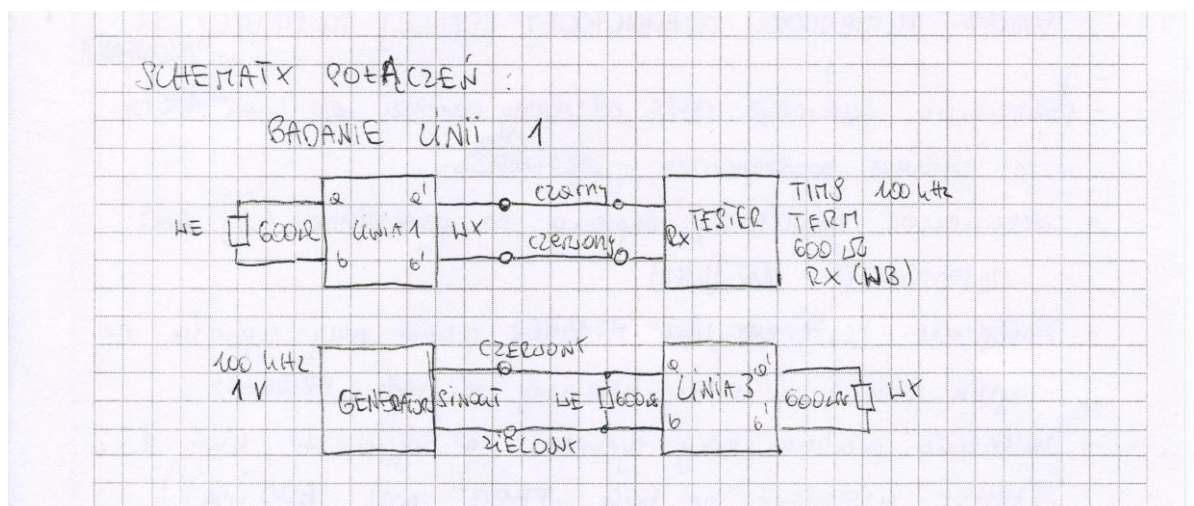 SCHEMATY POŁĄCZEŃ :
BADANIE LINII 1
WE 600Ω a b LINIA 1 a' b' WY czarny czerwony Rx TESTER
TIMS 100 kHz
TERM
600 Ω
RX (WB)
100 kHz
1 V
GENERATOR SINOUT CZERWONY ZIELONY WE 600Ω a b LINIA 3 a' b' 600Ω WY